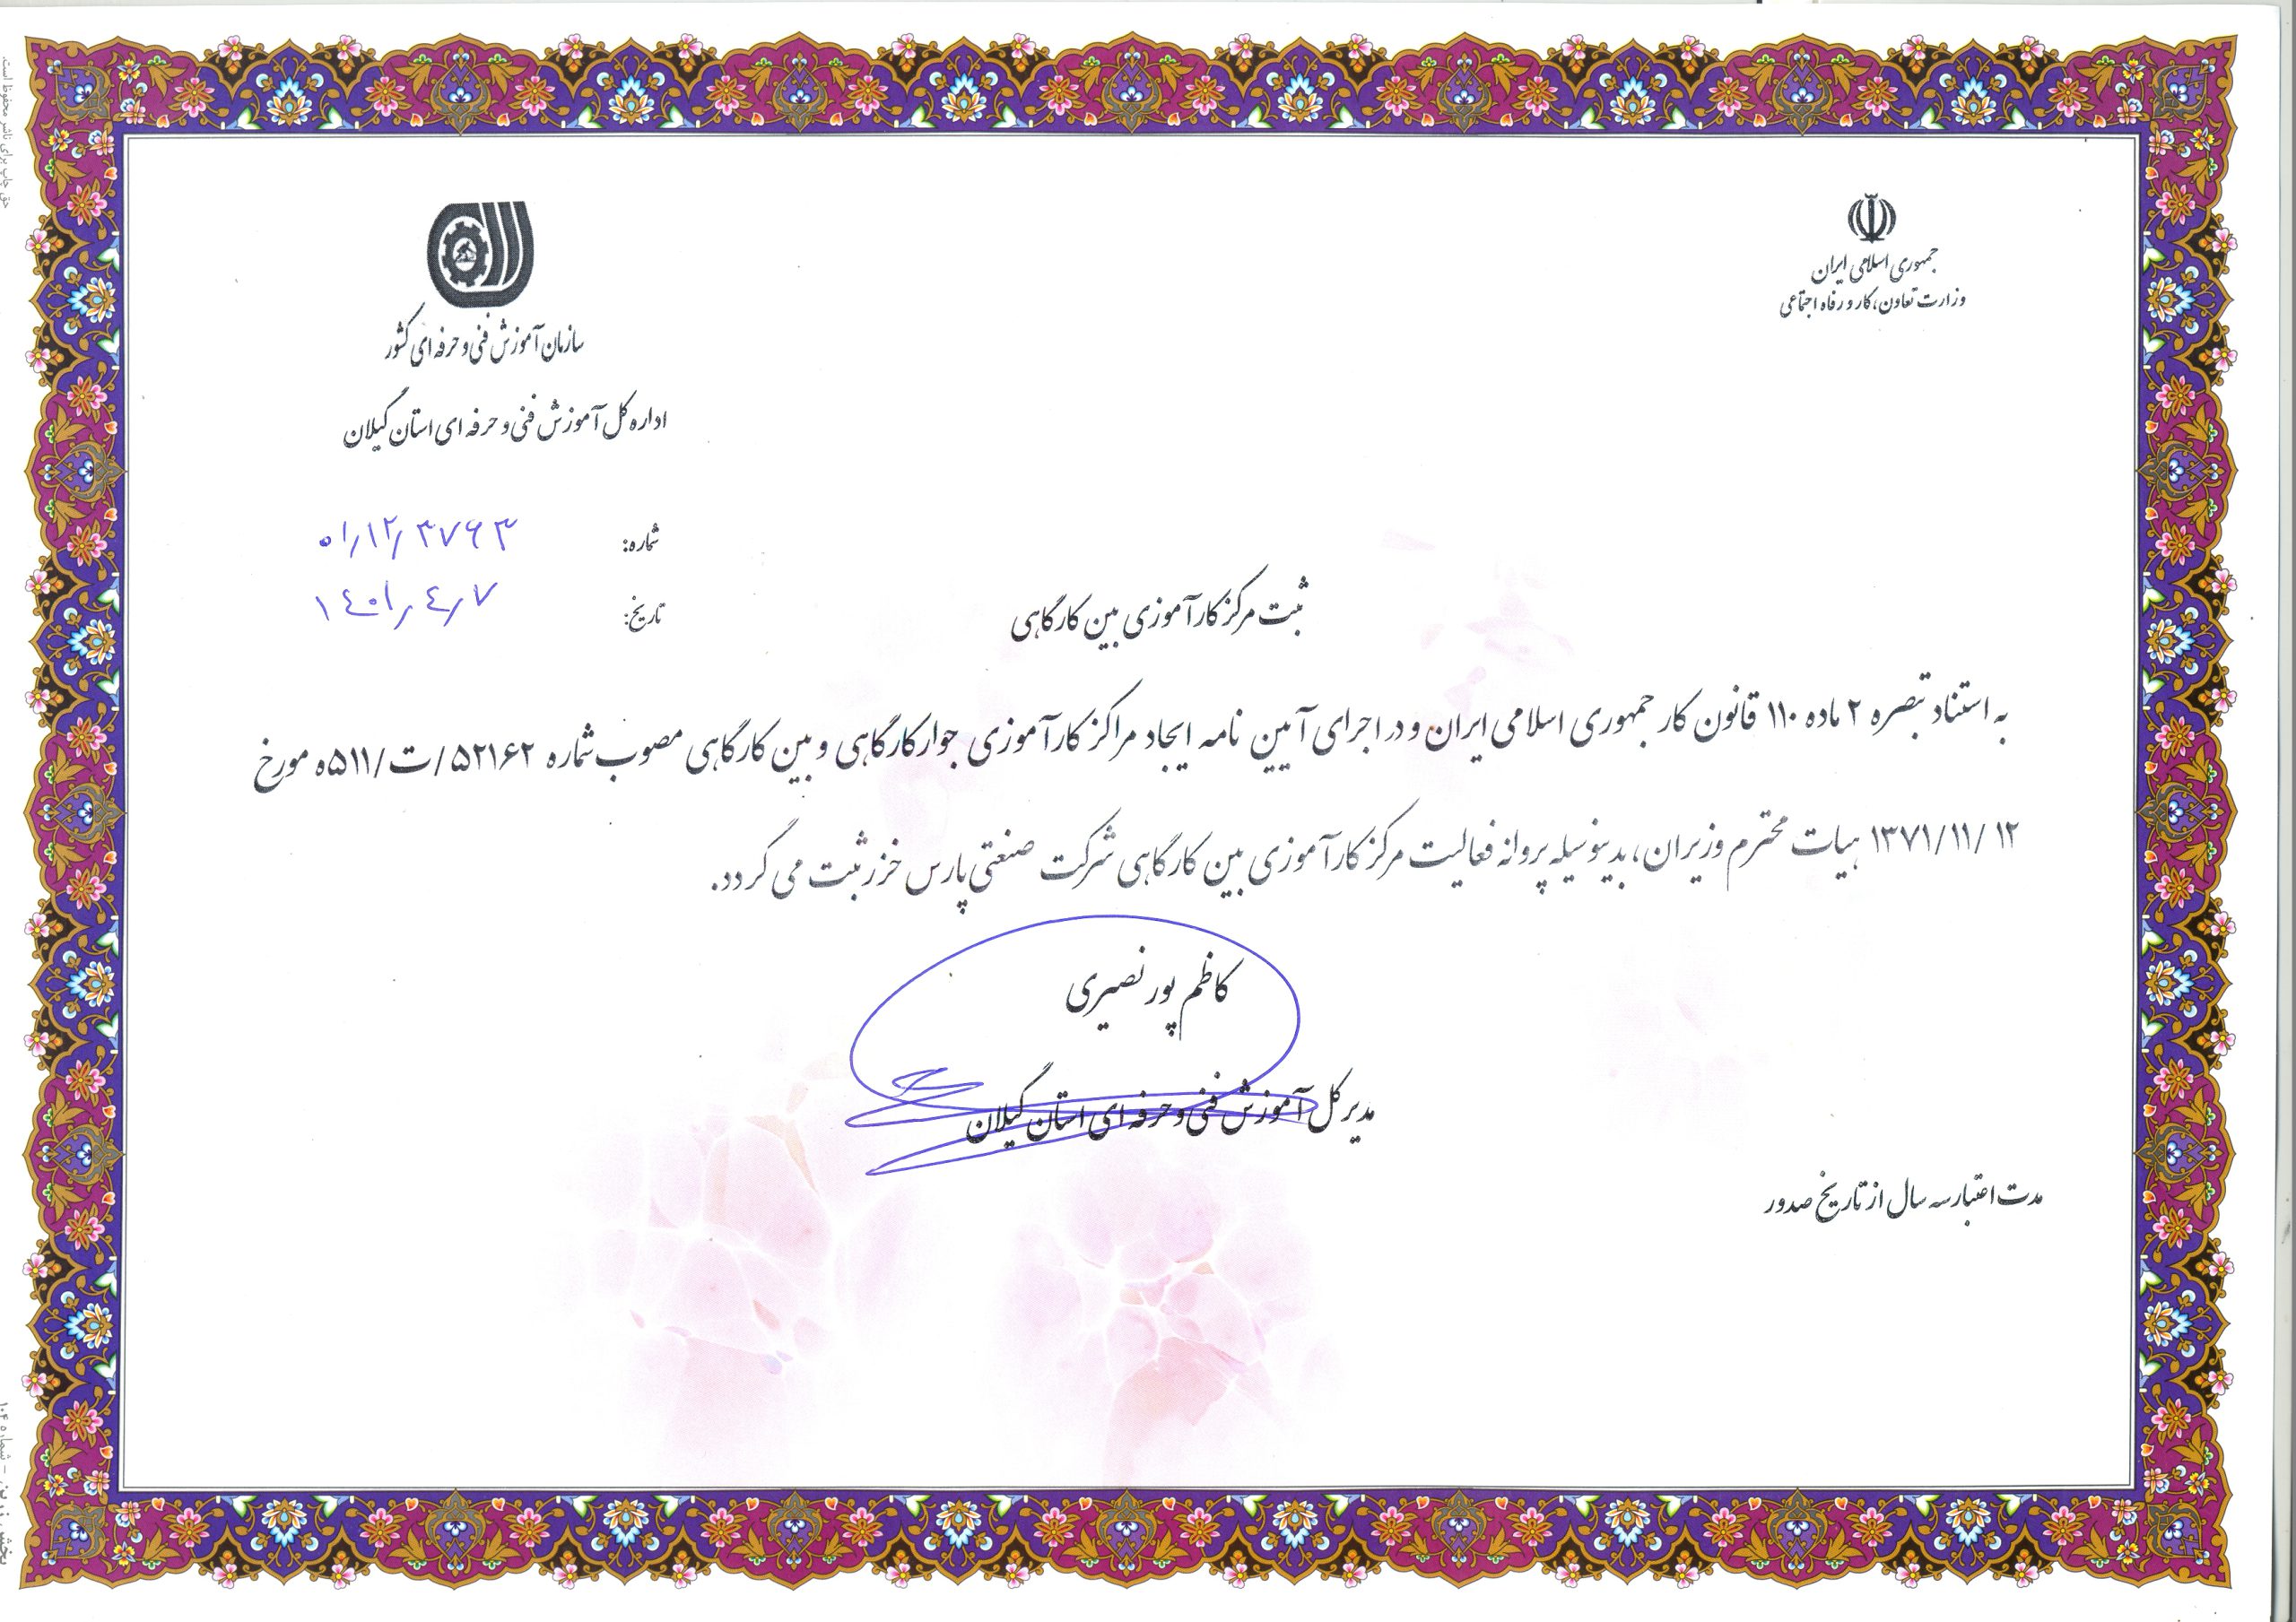 جمهوری اسلامی ایران
وزارت تعاون، کار و رفاه اجتماعی
سازمان آموزش فنی و حرفه ای کشور
اداره کل آموزش فنی و حرفه ای استان گیلان
شماره: ۰۱/۱۲/۳۷۶۳
تاریخ: ۱۴۰۱/۴/۷
ثبت مرکز کارآموزی بین کارگاهی
به استناد تبصره ۲ ماده ۱۱۰ قانون کار جمهوری اسلامی ایران و در اجرای آیین نامه ایجاد مراکز کارآموزی جوار کارگاهی و بین کارگاهی مصوب شماره ۵۲۱۶۲/ت/۵۱۱ه مورخ
۱۳۷۱/۱۱/۱۲ هیات محترم وزیران، بدینوسیله پروانه فعالیت مرکز کارآموزی بین کارگاهی شرکت صنعتی پارس خزر ثبت می گردد.
کاظم پور نصیری
مدیر کل آموزش فنی و حرفه ای استان گیلان
مدت اعتبار سه سال از تاریخ صدور
حق چاپ برای ناشر محفوظ است.